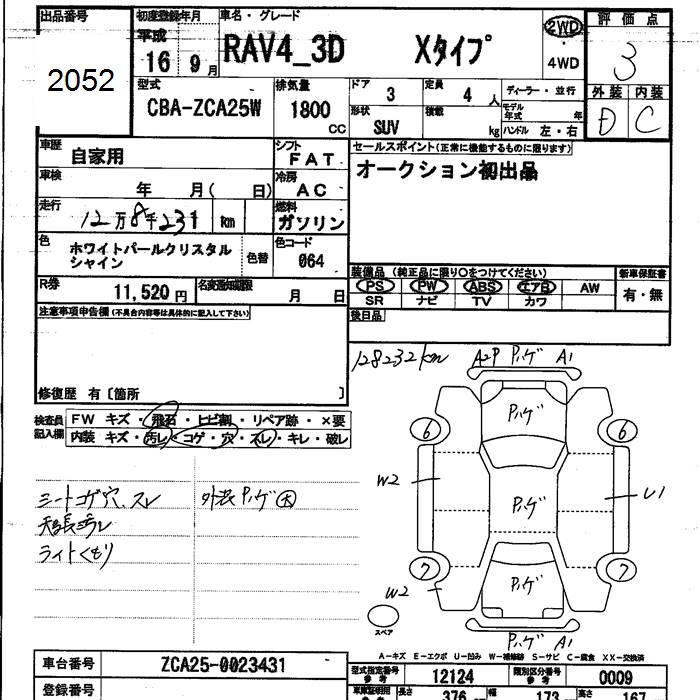 出品番号 初度登録年月 車名・グレード 評価点
2052 平成 16 9月 RAV4_3D Xタイプ 2WD・4WD 3
型式 排気量 ドア 定員 ディーラー・並行 外装 内装
CBA-ZCA25W 1800 CC 3 4 人 モデル年式 年 D C
形状 SUV 積載 kg ハンドル 左・右
車歴 自家用 シフト FAT セールスポイント(正常に機能するものに限ります)
車検 年 月( 日) 冷房 AC オークション初出品
走行 12万8千231 km 燃料 ガソリン
色 ホワイトパールクリスタルシャイン 色替 色コード 064
装備品 (純正品に限り○をつけてください) 新車保証書
R券 11,520円 名変期限 月 日 PS PW ABS エアB AW 有・無
SR ナビ TV カワ
注意事項申告欄(不具合内容等は具体的に記入して下さい) 後日品
128232km A2P ハゲ A1
修復歴 有〔箇所 〕
ハゲ
検査員記入欄 FW キズ・飛石・ヒビ割・リペア跡・×要
内装 キズ・汚レ・コゲ・穴・スレ・キレ・破レ
6 6
W2 ハゲ U1
シートコゲ穴、スレ 外装ハゲ大
天張汚レ
ライトくもり
7 7
ハゲ
W2
スペア
ハゲ A1
A-キズ E-エクボ U-凹み W-補修跡 S-サビ C-腐食 XX-交換済
車台番号 ZCA25-0023431 型式指定番号 参考 12124 類別区分番号 参考 0009
登録番号 車庫証明用 参考 長さ 376 cm 幅 173 cm 高さ 167